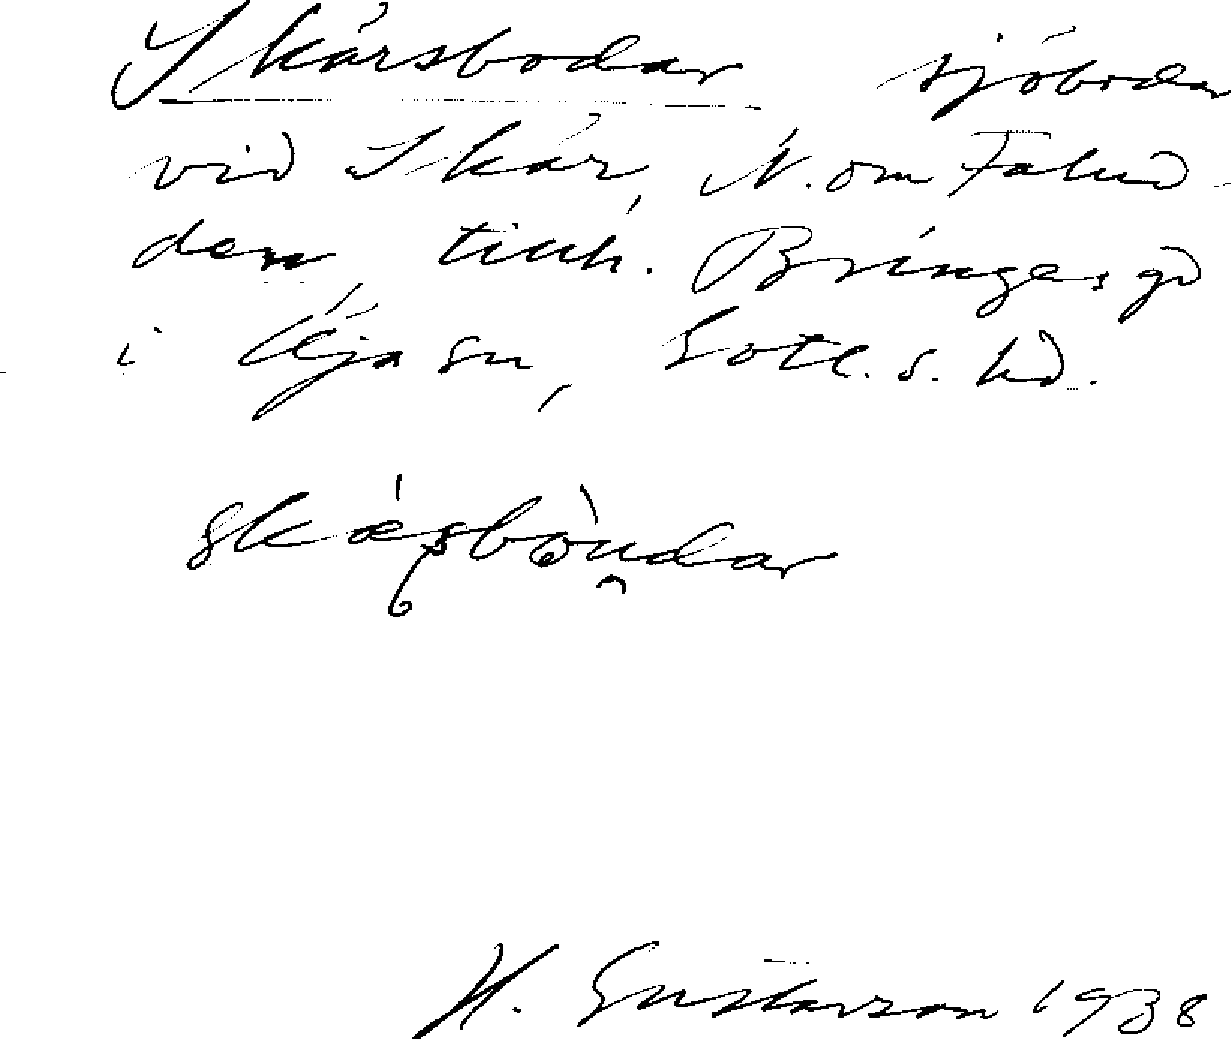 Skärsbodar sjöbodar
vid Skär, N. om Falud-
den tillh. Bringes gd
i Öja sn, Gotl. s. hd.
skæsbòudar
H. Gustavson 1938